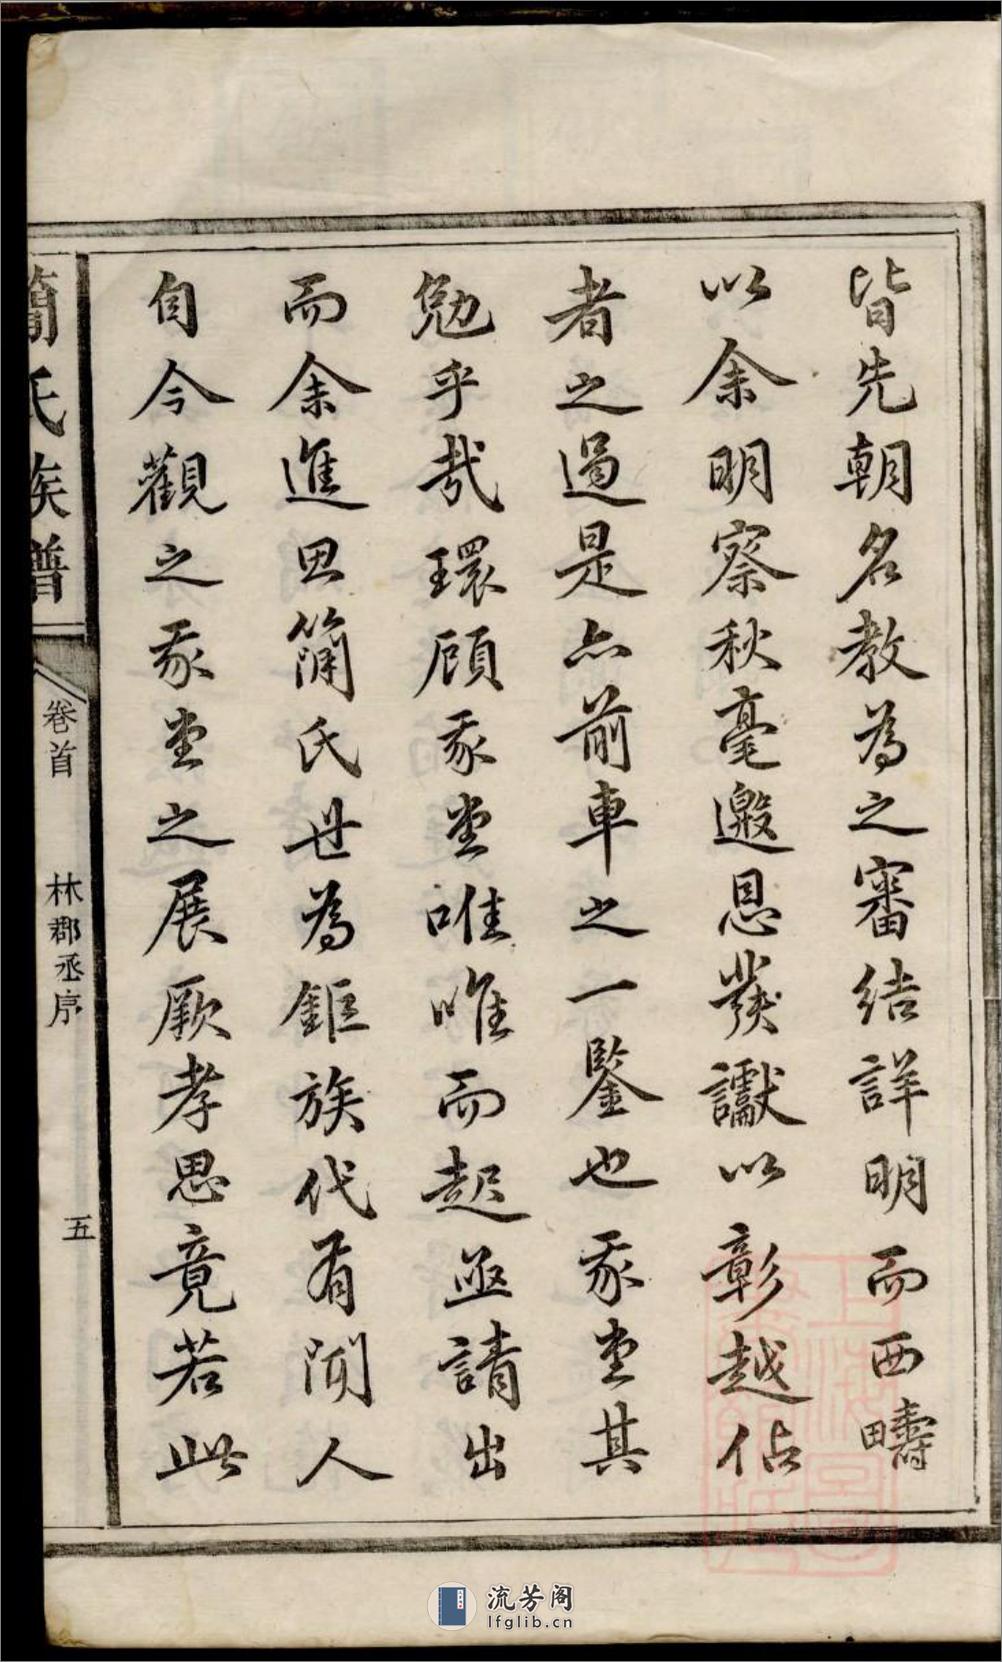 皆先朝名教為之審結詳明而西疇
以余明察秋毫邀恩發讞以彰越佔
者之過是亦前車之一鑒也豕堂其
勉乎哉環顧豕堂唯唯而起亟請出
而余進思簡氏世為鉅族代有聞人
自今觀之豕堂之展厥孝思竟若此
簡氏族譜
卷首
林郡丞序
五
流芳阁
lfglib.cn